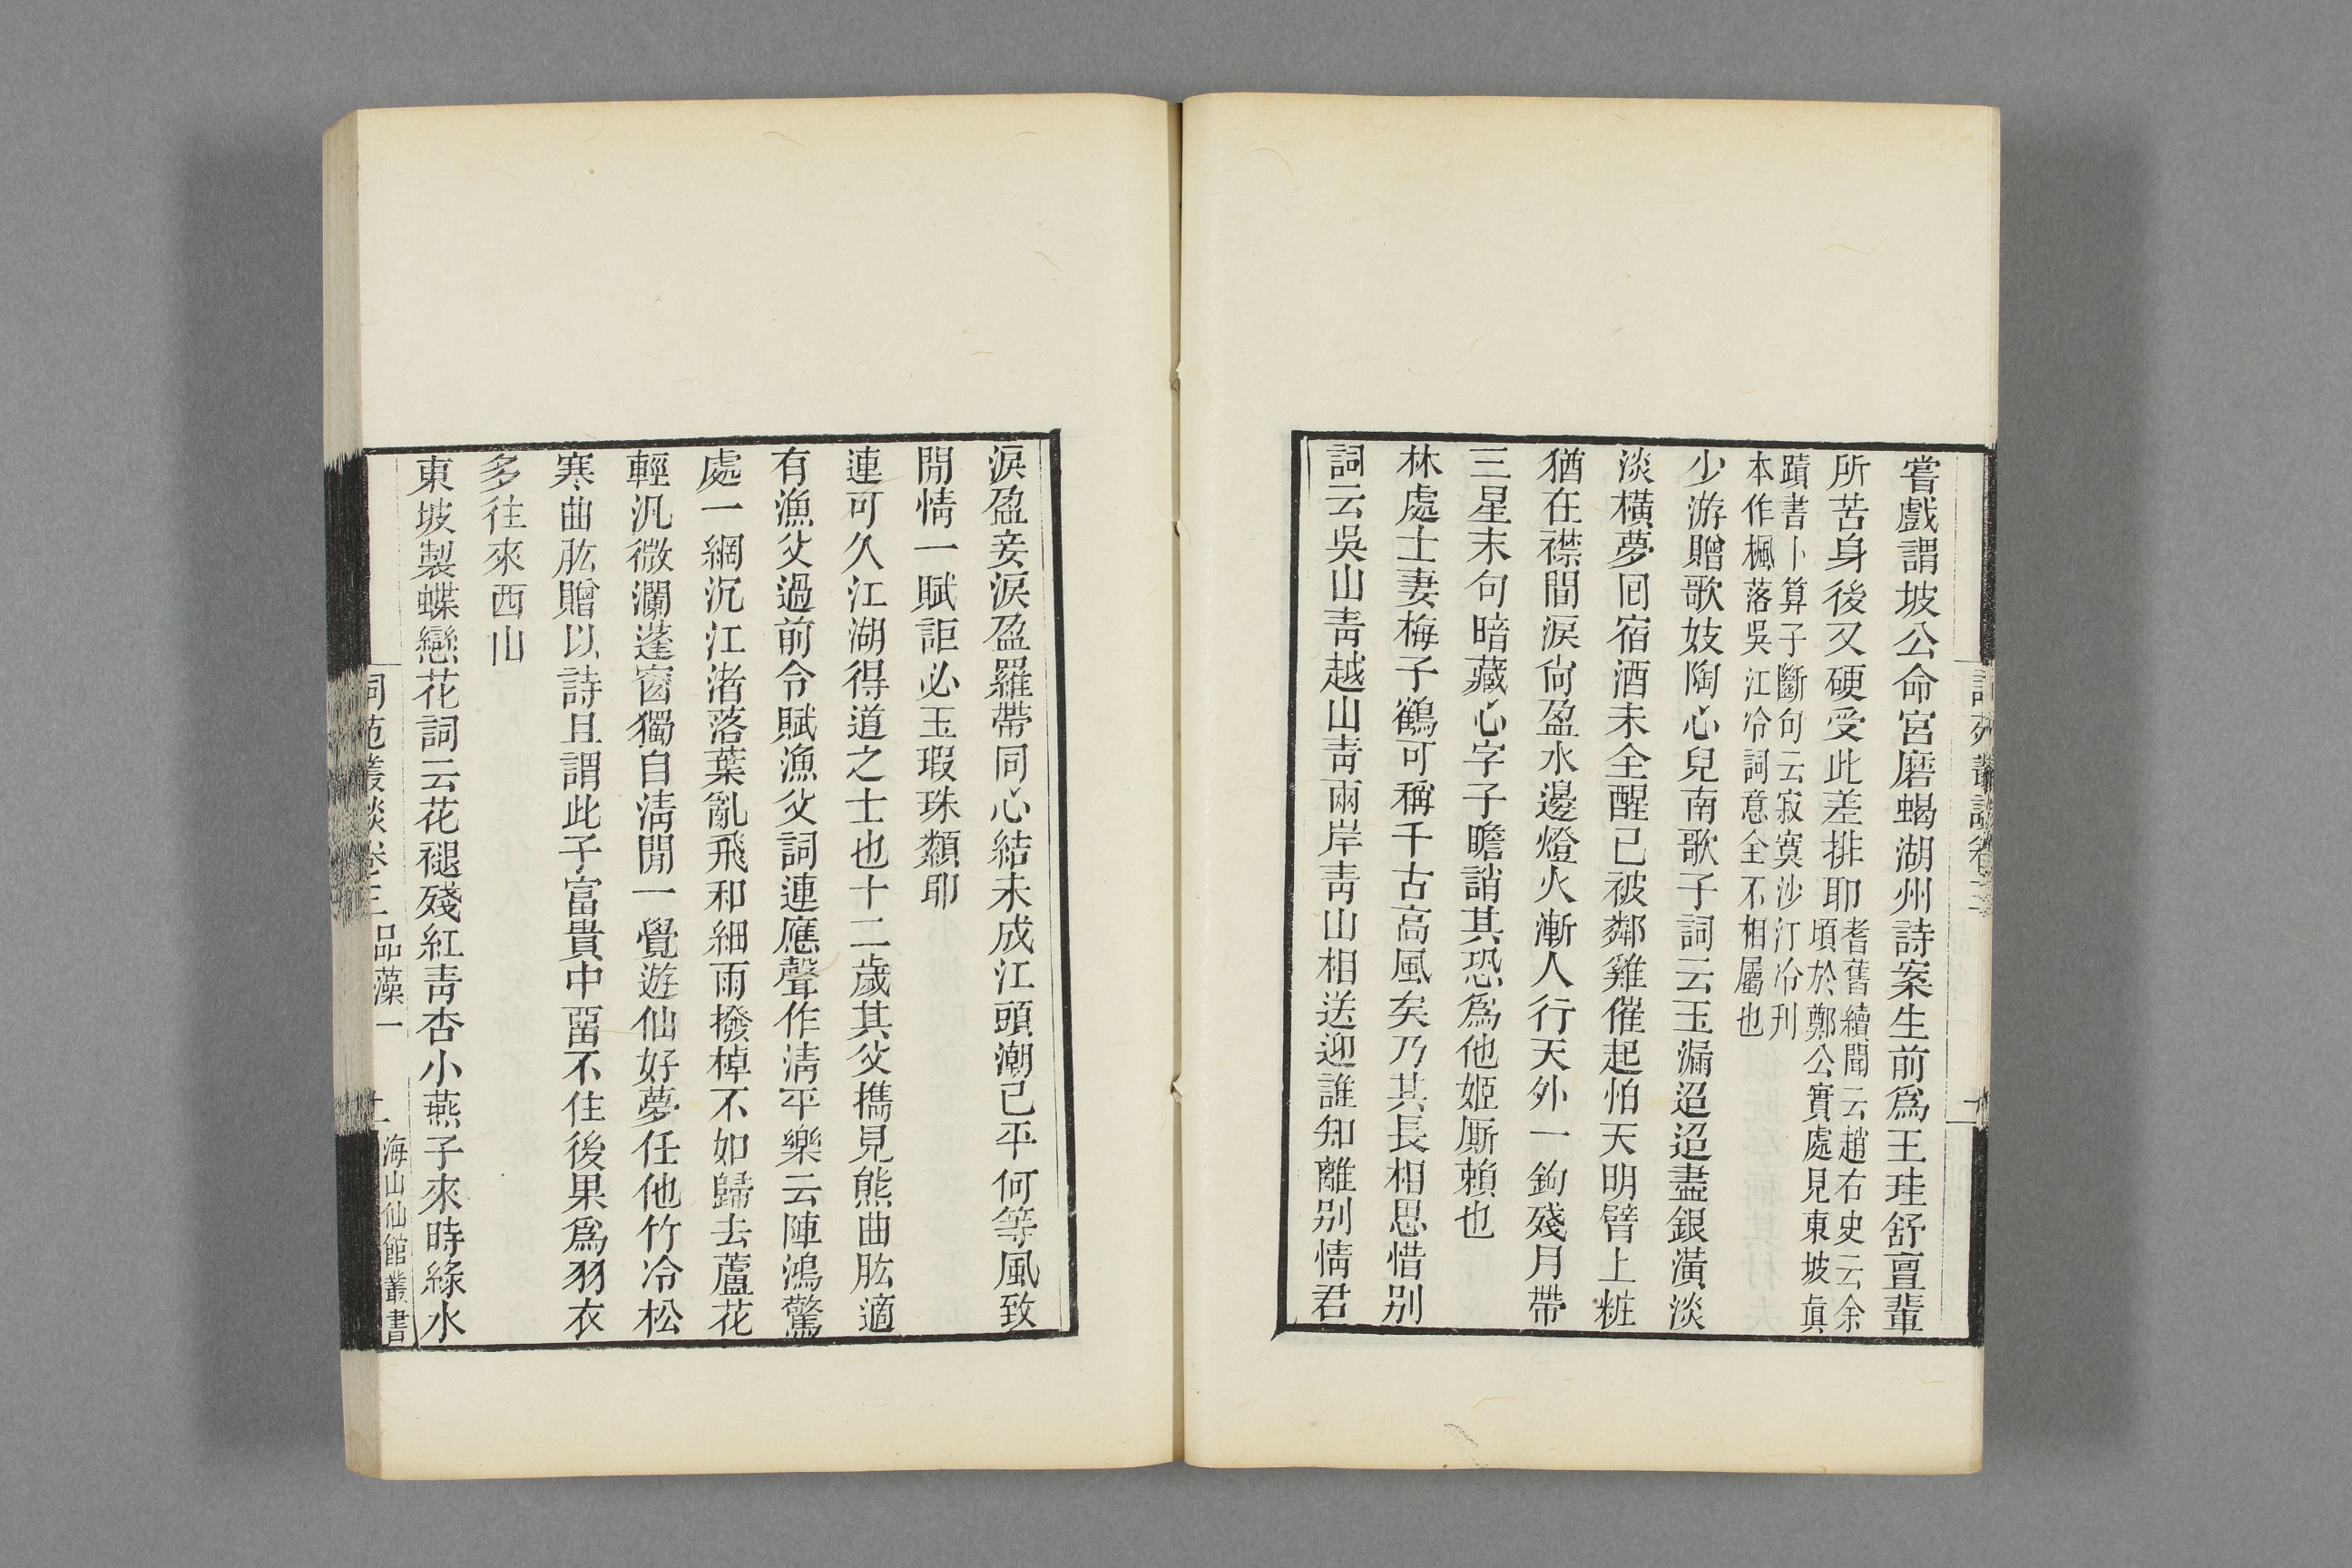 嘗戲謂坡公命宮磨蝎湖州詩案生前爲王珪舒亶輩
所苦身後又硬受此差排耶
耆舊續聞云趙右史云余
頃於鄭公實處見東坡眞
蹟書卜算子斷句云寂寞沙汀冷刋
本作楓落吳江冷詞意全不相屬也
少游贈歌妓陶心兒南歌子詞云玉漏迢迢盡銀潢淡
淡橫夢回宿酒未全醒已被鄰雞催起怕天明臂上粧
猶在襟間淚尙盈水邊燈火漸人行天外一鉤殘月帶
三星末句暗藏心字子瞻誚其恐爲他姬厮賴也
林處士妻梅子鶴可稱千古高風矣乃其長相思惜别
詞云吳山靑越山靑兩岸靑山相送迎誰知離别情君
淚盈妾淚盈羅帶同心結未成江頭潮已平何等風致
閒情一賦詎必玉瑕珠纇耶
連可久江湖得道之士也十二歲其父攜見熊曲肱適
有漁父過前令賦漁父詞連應聲作淸平樂云陣鴻驚
處一網沉江渚落葉亂飛和細雨撥棹不如歸去蘆花
輕汎微瀾蓬窗獨自淸閒一覺遊仙好夢任他竹冷松
寒曲肱贈以詩且謂此子富貴中畱不住後果爲羽衣
多往來西山
東坡製蝶戀花詞云花褪殘紅靑杏小燕子來時綠水
詞苑叢談卷三 品藻一
海山仙館叢書